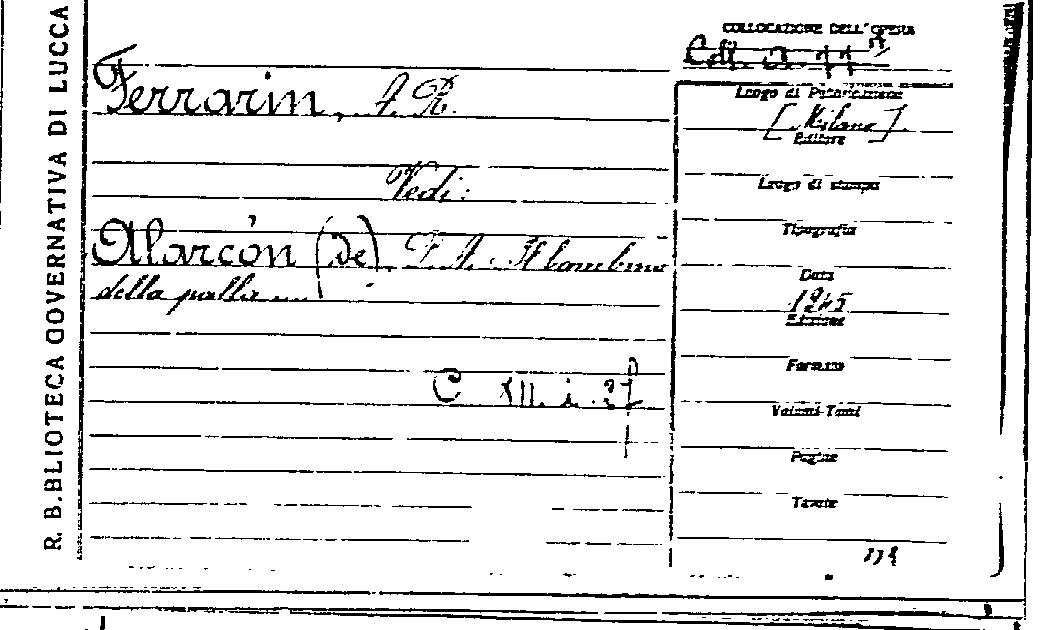 R. B.BLIOTECA GOVERNATIVA DI LUCCA
COLLOCAZIONE DELL'OPERA
Coll.
Ferrarin, A. R.
Vedi:
Alarcón (de) P. A. Il bambino
della palla....
C XII. i. 
Luogo di Pubblicazione
[Milano].
Editore
Luogo di stampa
Tipografia
Data
1945
Edizione
Formato
Volumi-Tomi
Pagine
Tavole